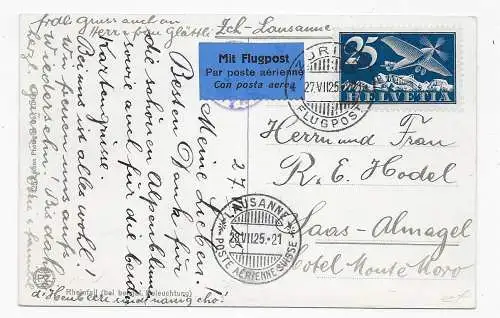 frdl. Gruss auch an
Herr & Frau Glättli
Zch-Lausanne
Mit Flugpost
Par poste aérienne
Con posta aerea
ZÜRICH
27.VII.25
FLUGPOST
25
HELVETIA
27.
Meine Lieben!
Besten Dank für
die schönen Alpenblumen
sowie auch für die beiden
Kartengrüsse.
Bei uns ist alles wohl!
Wir freuen uns aufs
Wiedersehn. Bis dahin
herzl.
Herrn und Frau
R. E. Hodel
Saas-Almagel
Hotel Monte Moro
LAUSANNE
28.VII.25-21
POSTE AÉRIENNE SUISSE
Rheinfall (bei bengal. Beleuchtung)